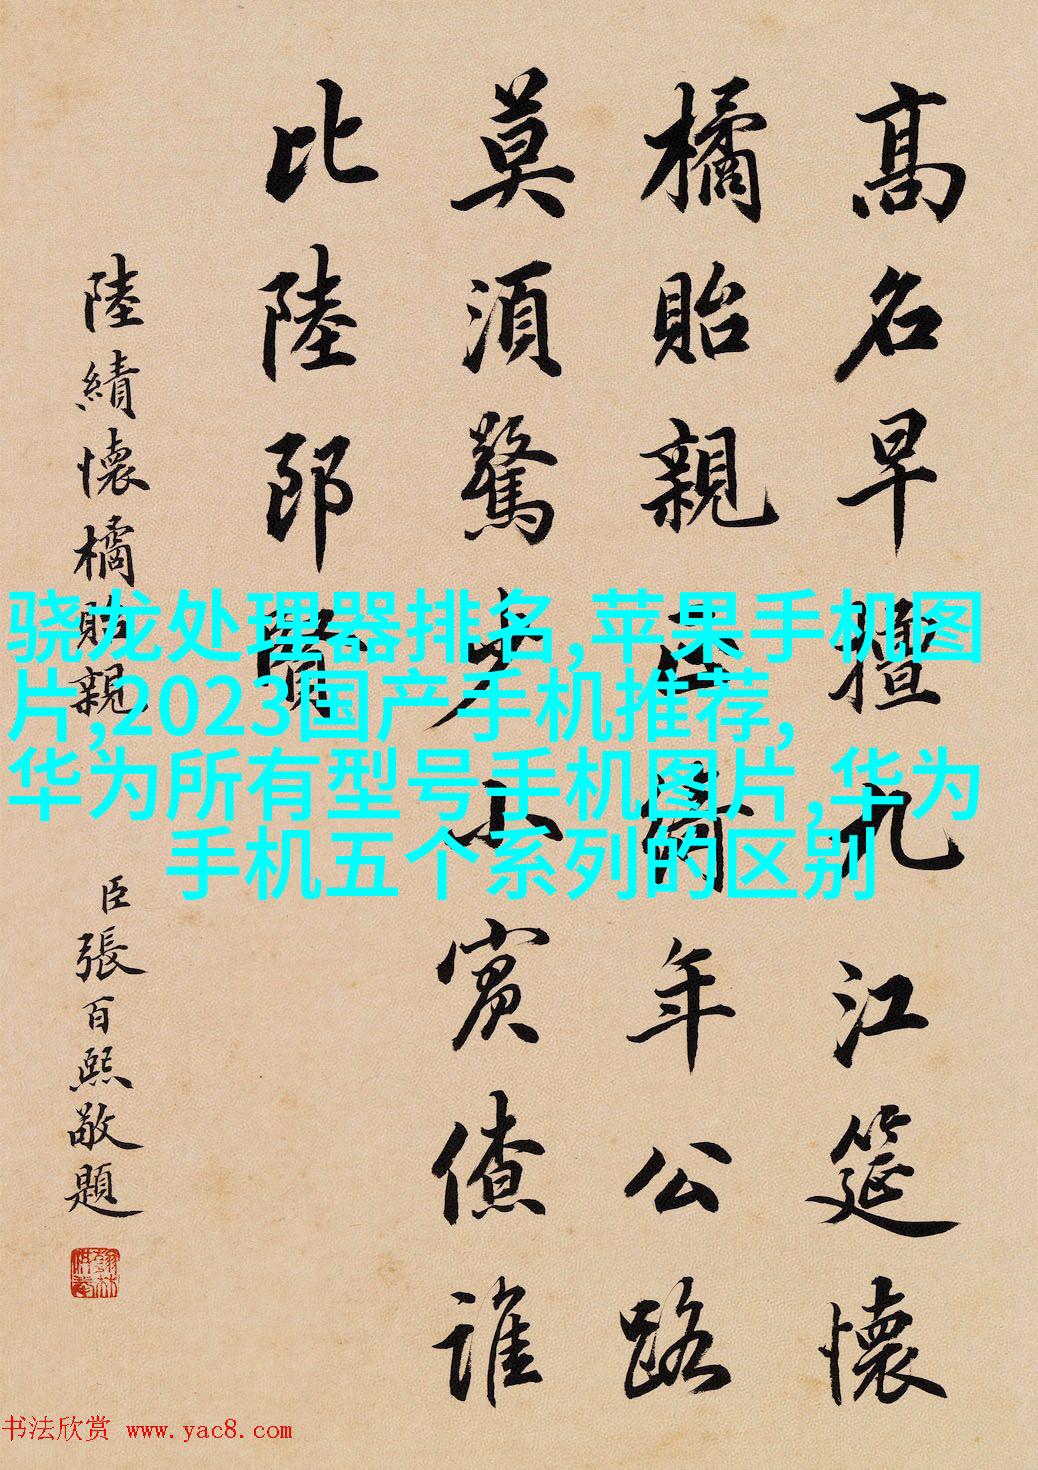 高名早擅九江筵懷
橘貽親正年公路
莫須驚少小賓僚誰
比陸郎賢
陸績懷橘貽親
臣張百熙敬題
骁龙处理器排名,苹果手机图
片,2023国产手机推荐,
华为所有型号手机图片,华为
手机五个系列的区别
书法欣赏 www.yac8.com